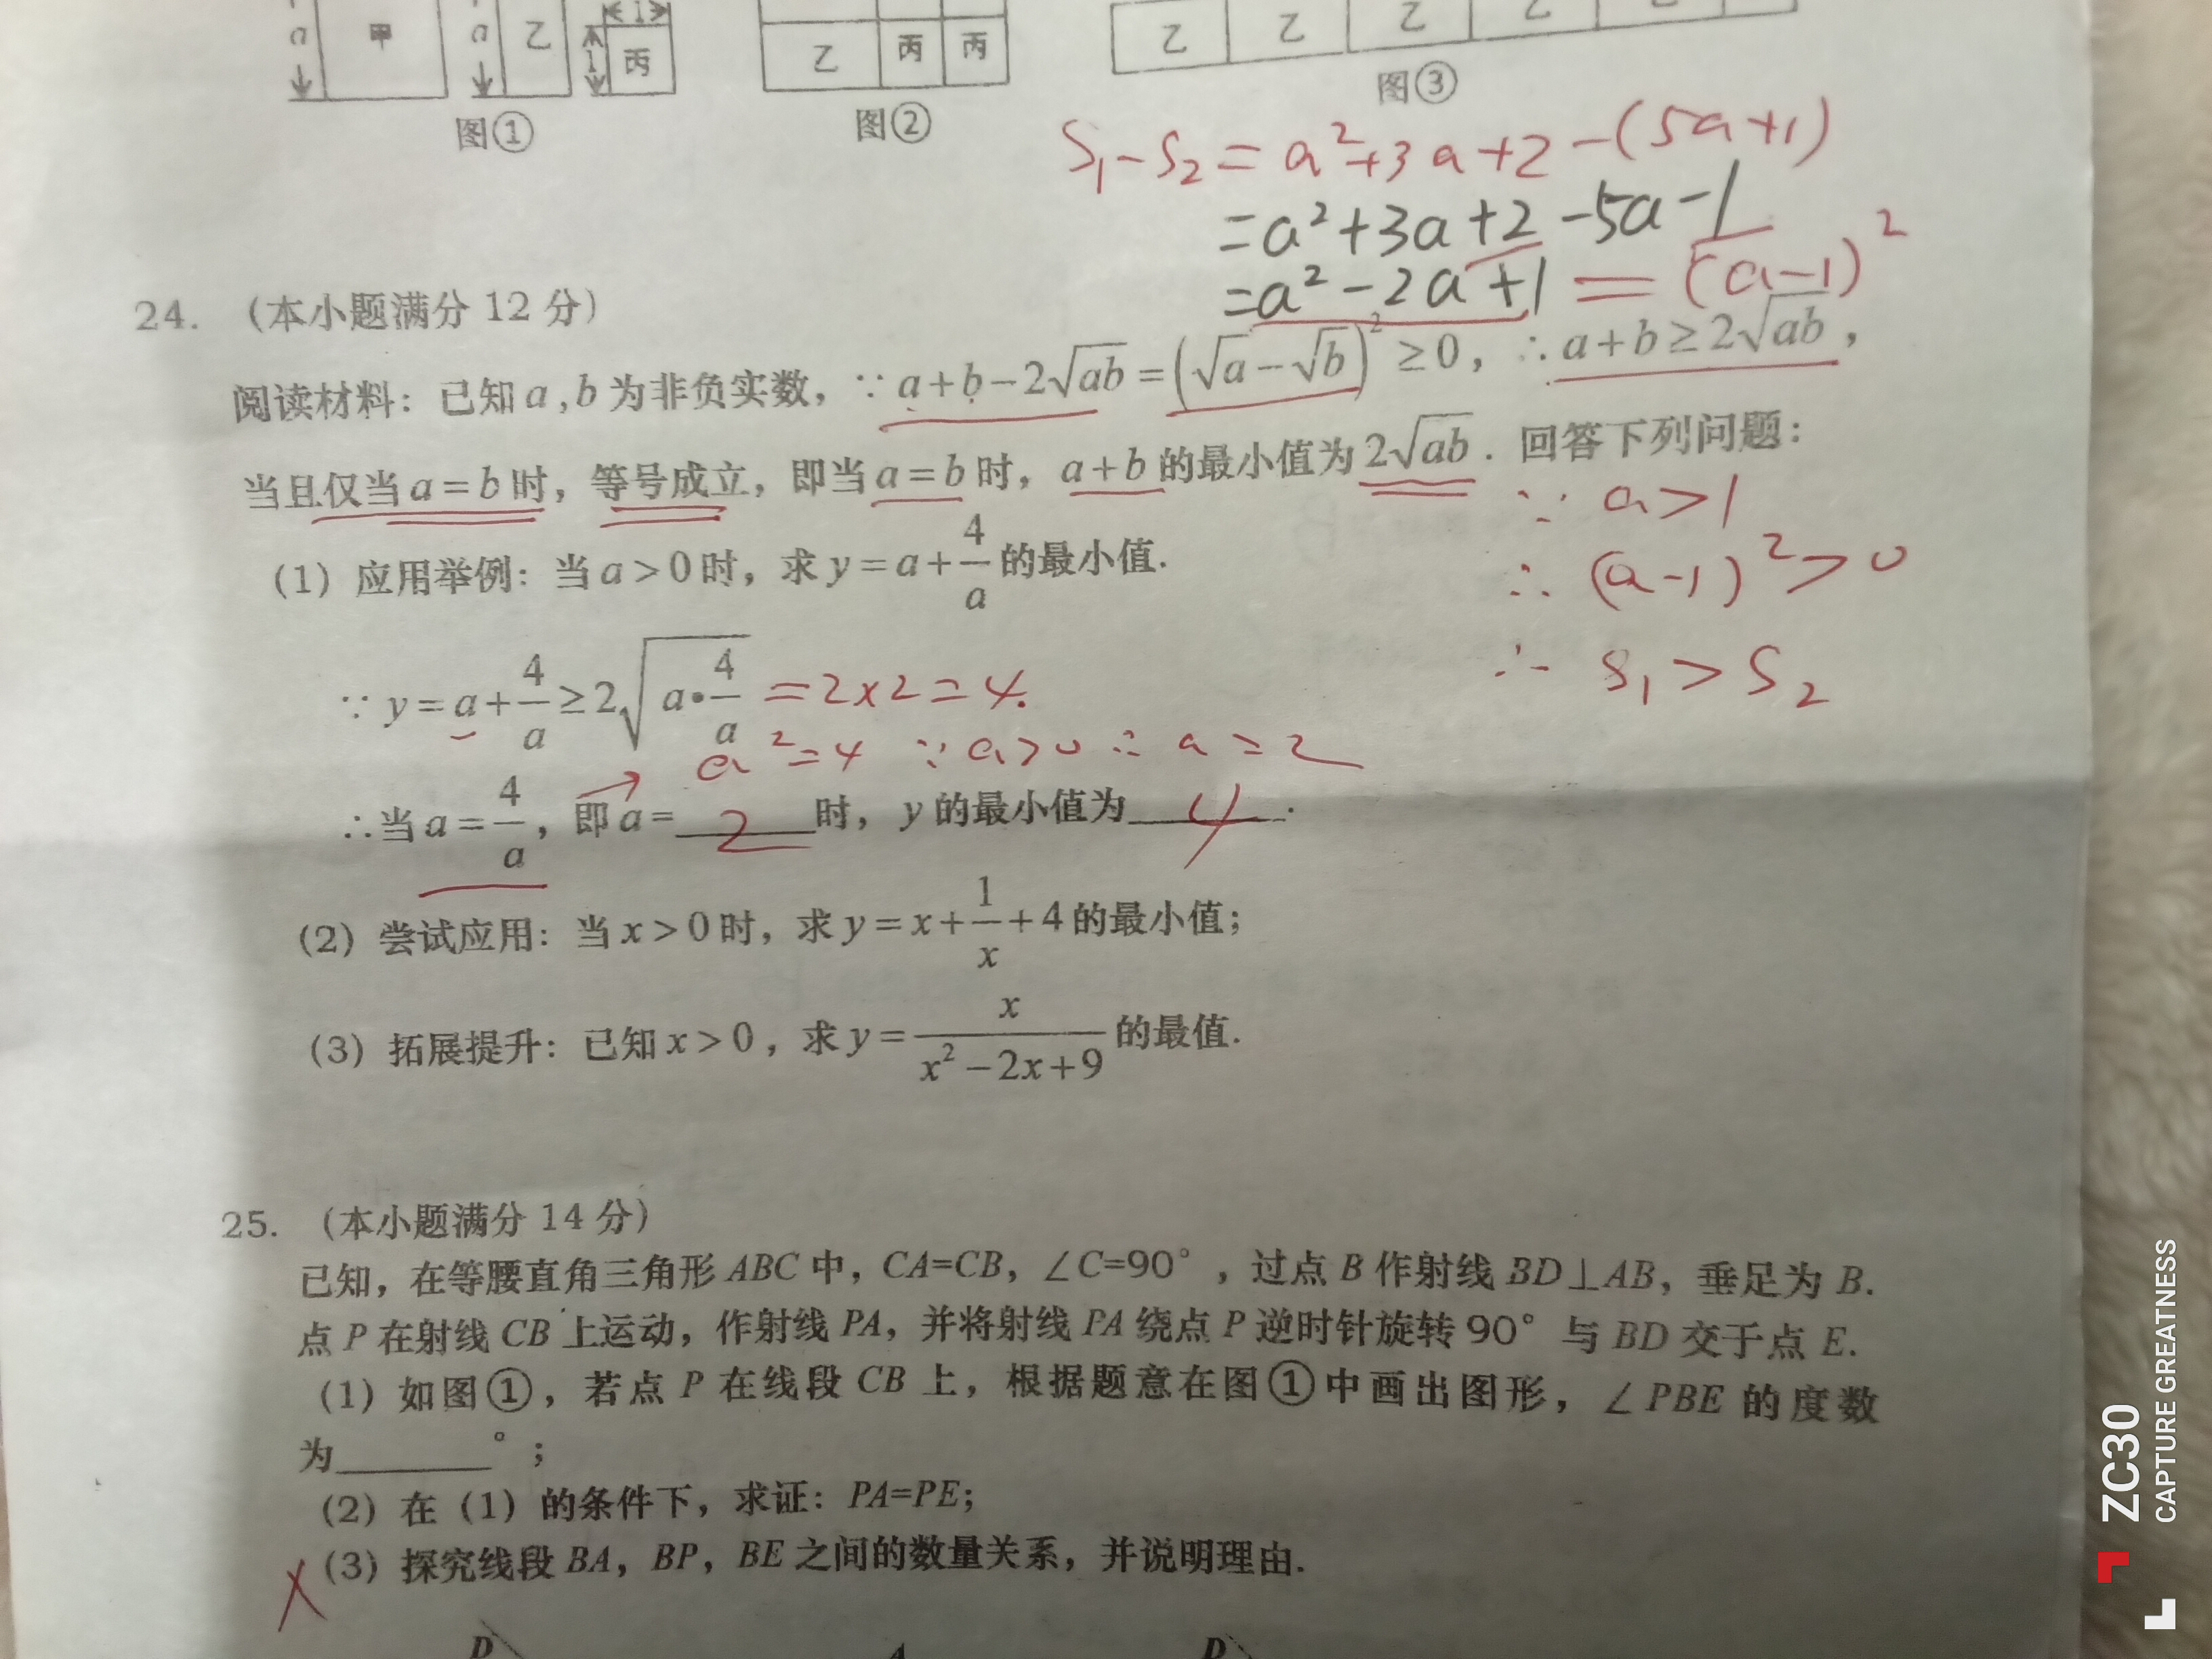 a 甲 a 乙 1 1 丙
乙 丙 丙
乙 乙 乙 乙 乙
图① 图② 图③
S₁-S₂=a²+3a+2-(5a+1)
=a²+3a+2-5a-1
=a²-2a+1=(a-1)²
24. （本小题满分 12 分）
阅读材料：已知a,b为非负实数，∵a+b-2√(ab)=(√a-√b)²≥0，∴a+b≥2√(ab)，
当且仅当a=b时，等号成立，即当a=b时，a+b的最小值为2√(ab). 回答下列问题：
∵ a>1
∴ (a-1)²>0
∴ S₁>S₂
（1）应用举例：当a>0时，求y=a+4/a的最小值.
∵y=a+4/a≥2√(a•4/a) =2×2=4.
a²=4 ∵a>0 ∴a=2
∴当a=4/a，即a=2时，y的最小值为4.
（2）尝试应用：当x>0时，求y=x+1/x+4的最小值；
（3）拓展提升：已知x>0，求y=x/(x²-2x+9)的最值.
25. （本小题满分 14 分）
已知，在等腰直角三角形ABC中，CA=CB，∠C=90°，过点B作射线BD⊥AB，垂足为B.
点P在射线CB上运动，作射线PA，并将射线PA绕点P逆时针旋转90°与BD交于点E.
（1）如图①，若点P在线段CB上，根据题意在图①中画出图形，∠PBE的度数
为______°；
（2）在（1）的条件下，求证：PA=PE；
（3）探究线段BA，BP，BE之间的数量关系，并说明理由.
D A D
ZC30
CAPTURE GREATNESS